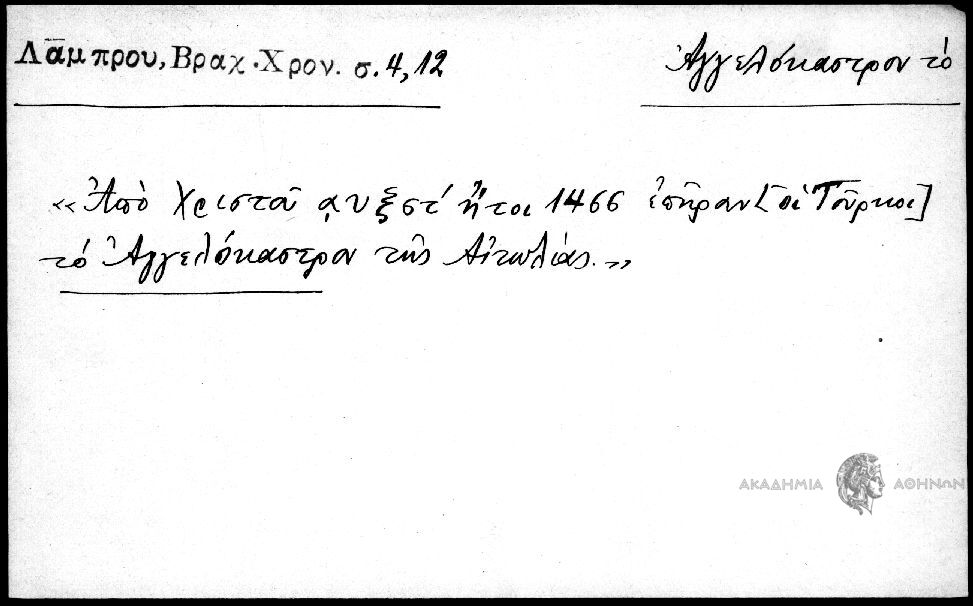 Λάμπρου, Βραχ. Χρον. σ. 4, 12
Ἀγγελόκαστρον τό
«Ἀπὸ Χριστοῦ ͵αυξστ´ ἤτοι 1466 ἐπῆραν [οἱ Τοῦρκοι]
τό Ἀγγελόκαστρον τῆς Αἰτωλίας.»
ΑΚΑΔΗΜΙΑ ΑΘΗΝΩΝ